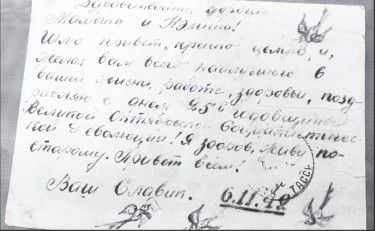 Здравствуйте, дорогие
Мамочка и Нэлита!
Шлю привет, крепко целую и,
желая вам всего наилучшего в
вашей жизни, работе, здоровьи, позд-
равляю с днем 25й годовщины
Великой Октябрьской Социалистичес-
кой Революции! Я здоров, живу по-
старому. Привет всем!
Ваш Славик. 6.11.42
ТАСС